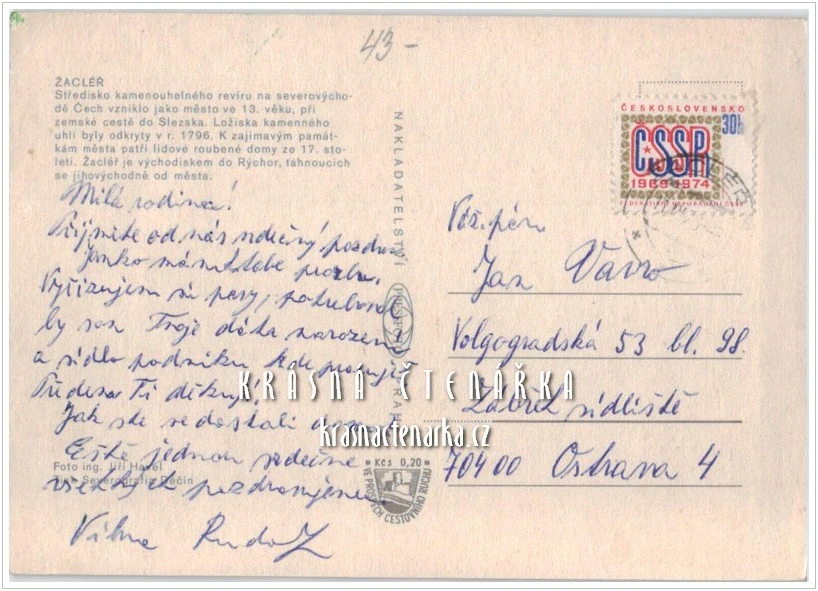 43 -
ŽACLÉŘ
Středisko kamenouhelného revíru na severovýcho-
dě Čech vzniklo jako město ve 13. věku, při
zemské cestě do Slezska. Ložiska kamenného
uhlí byly odkryty v r. 1796. K zajímavým památ-
kám města patří lidové roubené domy ze 17. sto-
letí. Žacléř je východiskem do Rýchor, táhnoucích
se jihovýchodně od města.
Milá rodina!
Prijmite od nás srdečný pozdrav
Janko mám k tebe prozbu.
Vyřizujem si pasy, potreboval
by som Troje dáta narodzení
a sídlo podniku kde pracuješ
Předem Ti děkuji!
Jak ste se dostali
Ešte jednou srdečne
všetkých pozdravujeme
Vilma Rudolf
Foto ing. Jiří Havel
Tisk Severografia Děčín
NAKLADATELSTVÍ
PRAHA
Kčs 0,20
VE PROSPĚCH CESTOVNÍHO RUCHU
ČESKOSLOVENSKO
30h
ČSSR
1969-1974
FEDERATIVNÍ USPOŘÁDÁNÍ ČSSR
Váž. pán
Jan Vávro
Volgogradská 53 bl. 98.
Zábřeh sídliště
704 00 Ostrava 4
KRÁSNÁ ČTENÁŘKA
krasnactenarka.cz